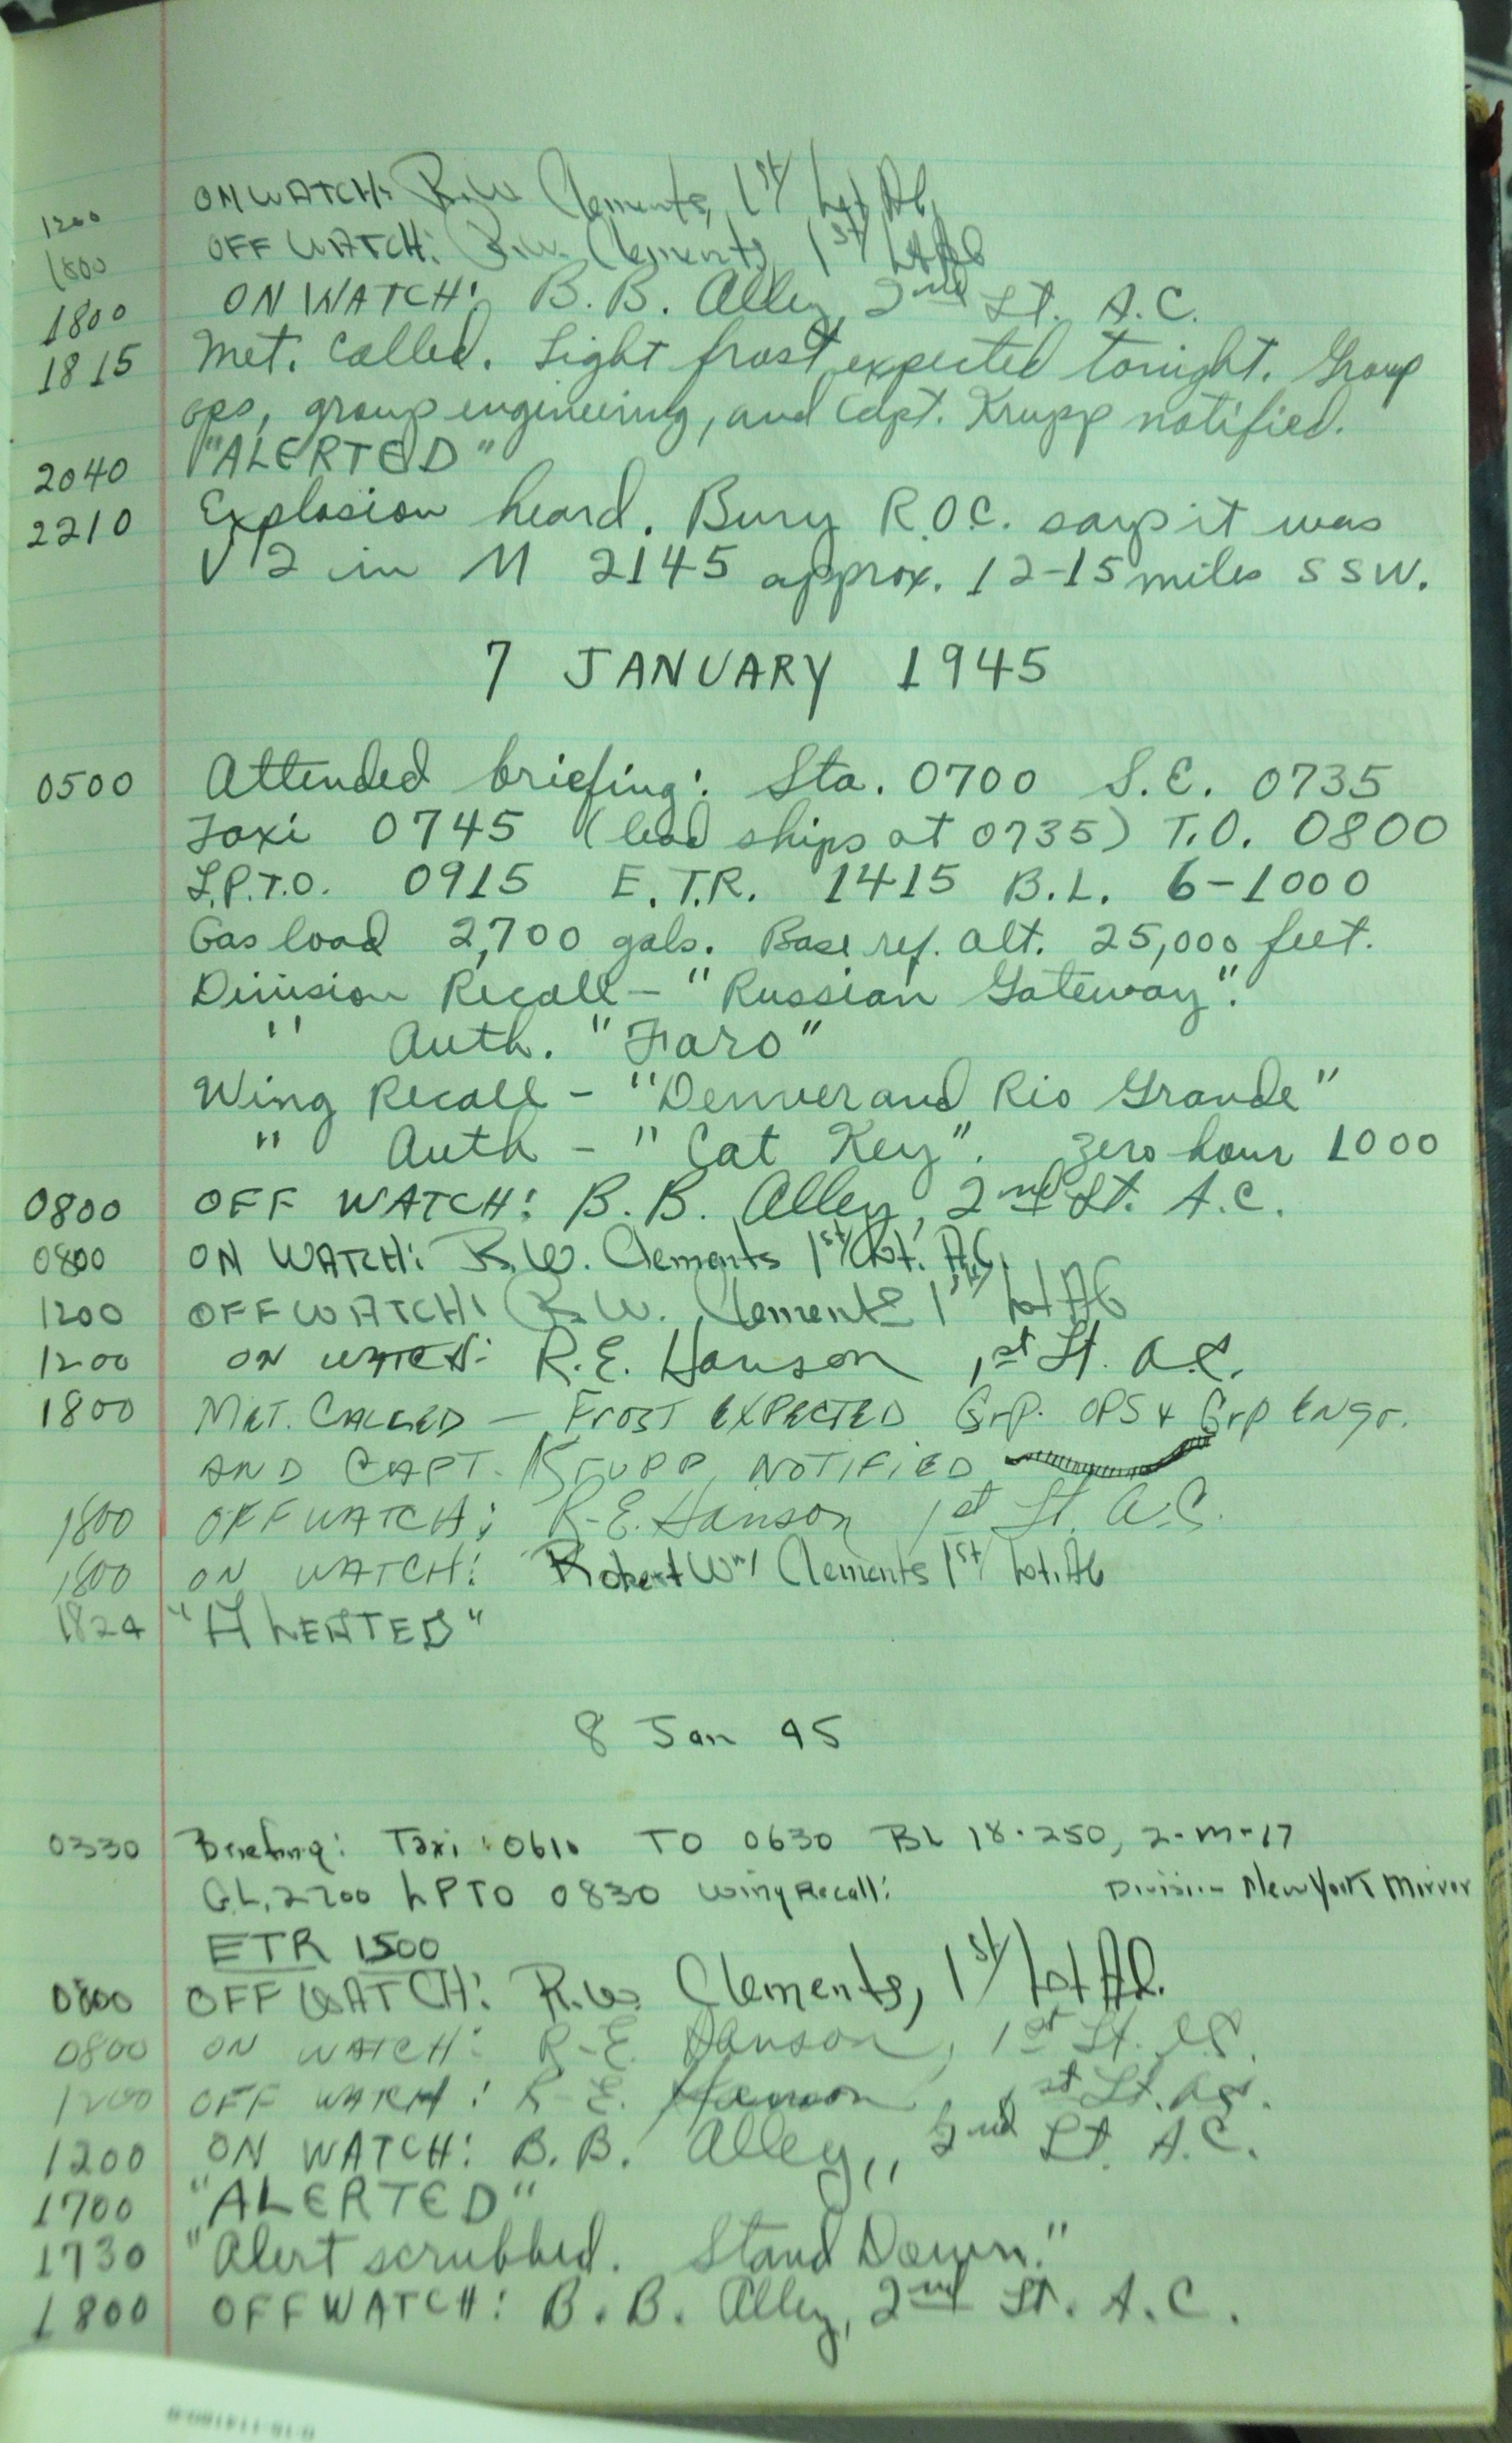 1200 ON WATCH: R.W. Clements, 1st Lt. AC
1800 OFF WATCH: R.W. Clements 1st Lt AC
1800 ON WATCH: B. B. Alley, 2nd Lt. A.C.
1815 Met. Called. Light frost expected tonight. Group
ops, group engineering, and Capt. Krupp notified.
2040 "ALERTED"
2210 Explosion heard. Bury R.O.C. says it was
V 2 in M 2145 approx. 12-15 miles SSW.
7 JANUARY 1945
0500 Attended briefing: Sta. 0700 S.E. 0735
Taxi 0745 (lead ships at 0735) T.O. 0800
L.P.T.O. 0915 E.T.R. 1415 B.L. 6-1000
Gas load 2,700 gals. Base ref. alt. 25,000 feet.
Division Recall - "Russian Gateway".
" Auth. "Faro"
Wing Recall - "Denver and Rio Grande"
" Auth - "Cat Key". Zero hour 1000
0800 OFF WATCH: B. B. Alley, 2nd Lt. A.C.
0800 ON WATCH: R.W. Clements 1st Lt. AC.
1200 OFF WATCH: R.W. Clements 1st Lt AC
1200 ON WATCH: R.E. Hanson 1st Lt. A.C.
1800 MET. CALLED — FROST EXPECTED Grp. OPS & Grp Engr.
AND CAPT. KRUPP NOTIFIED
1800 OFF WATCH: R.E. Hanson 1st Lt. A.C.
1800 ON WATCH: Robert Wm Clements 1st Lt. AC
1824 "ALERTED"
8 Jan 45
0330 Briefing: Taxi: 0610 TO 0630 BL 18-250, 2-M-17
GL. 2700 LPTO 0830 Wing Recall: Division New York Mirror
ETR 1500
0800 OFF WATCH: R.W. Clements, 1st Lt AC.
0800 ON WATCH: R.E. Hanson, 1st Lt. A.C.
1200 OFF WATCH: R.E. Hanson 1st Lt. A.C.
1200 ON WATCH: B.B. Alley, 2nd Lt. A.C.
1700 "ALERTED"
1730 "Alert scrubbed. Stand Down."
1800 OFF WATCH: B.B. Alley, 2nd Lt. A.C.